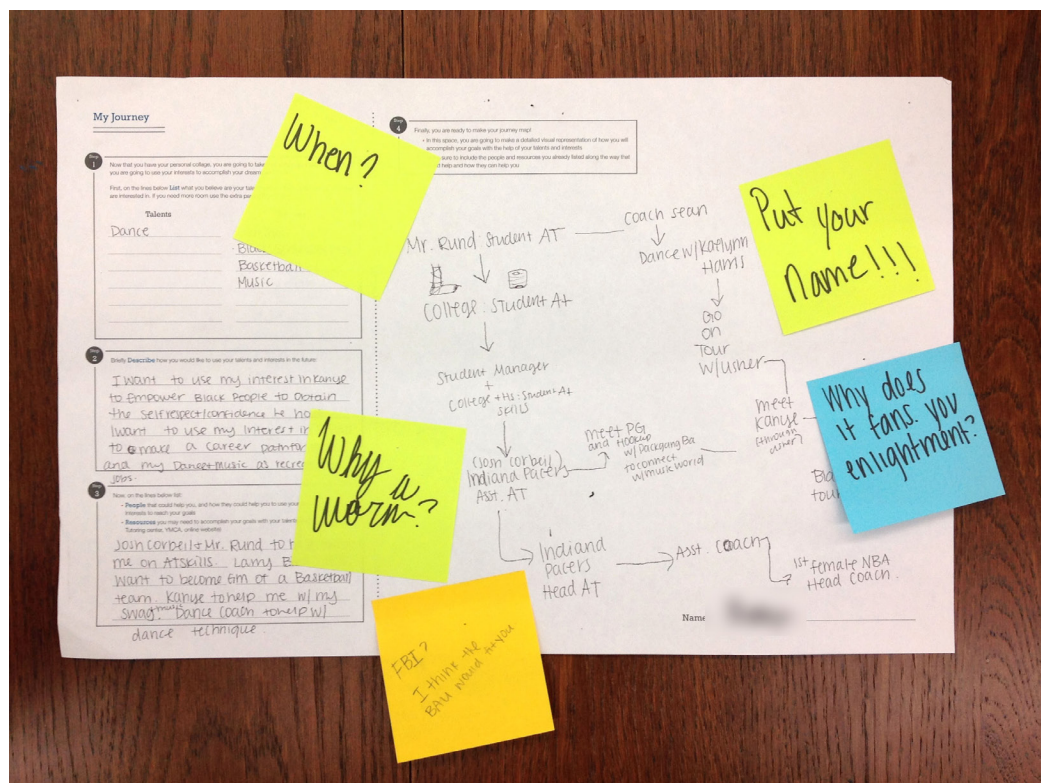 My Journey
Step
1
Now that you have your personal collage, you are going to take
you are going to use your interests to accomplish your dream
First, on the lines below List what you believe are your tal
are interested in. If you need more room use the extra pa
Talents
Dance
Basketball
Music
When?
Step
2
Briefly Describe how you would like to use your talents and interests in the future:
I want to use my interest in Kanye
to Empower Black People to Obtain
the selfrespect/confidence he ha
I want to use my interest in
to make a career
and my Dance+music as
jobs.
Why a
worm?
Step
3
Now, on the lines below list:
- People that could help you, and how they could help you to use your
interests to reach your goals
- Resources you may need to accomplish your goals with your talents
Tutoring center, YMCA, online website)
Josh Corbeil+Mr. Rund to
me on AT skills. Larry B
Want to become GM of a Basketball
team. Kanye to help me w/ my
swag+music Dance Coach to help w/
dance technique
Step
4
Finally, you are ready to make your journey map!
- In this space, you are going to make a detailed visual representation of how you will
accomplish your goals with the help of your talents and interests
sure to include the people and resources you already listed along the way that
help and how they can help you
Mr. Rund Student AT
Coach Sean
Dance w/ Kaelynn
Harris
College: Student At
GO
on
Tour
w/usher
Student Manager
+
College + Hs: Student At
skills
meet
Kanye
(through
usher)
meet PG
and Hookup
w/ Packgang Ba
to connect
w/ music world
(Josh Corbeil)
Indiana Pacers
Asst. AT
tou
Indiana
Pacers
Head AT
Asst. Coach
1st female NBA
Head Coach.
Name
Put your
name!!!
Why does
it fans. you
enlightment?
FBI?
I think the
BAU would fit you